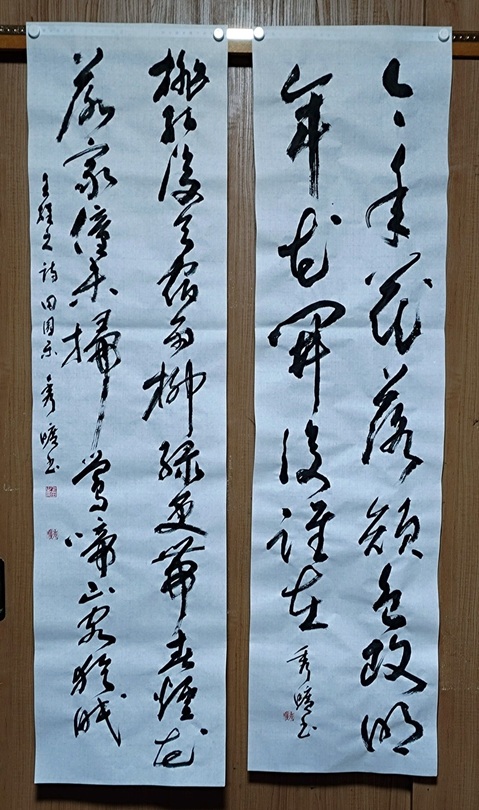 今年花落顔色改明
年花開復誰在
桃紅復含宿雨柳緑更帯春煙花
落家僮未掃鶯啼山客猶眠
王維之詩 田園楽